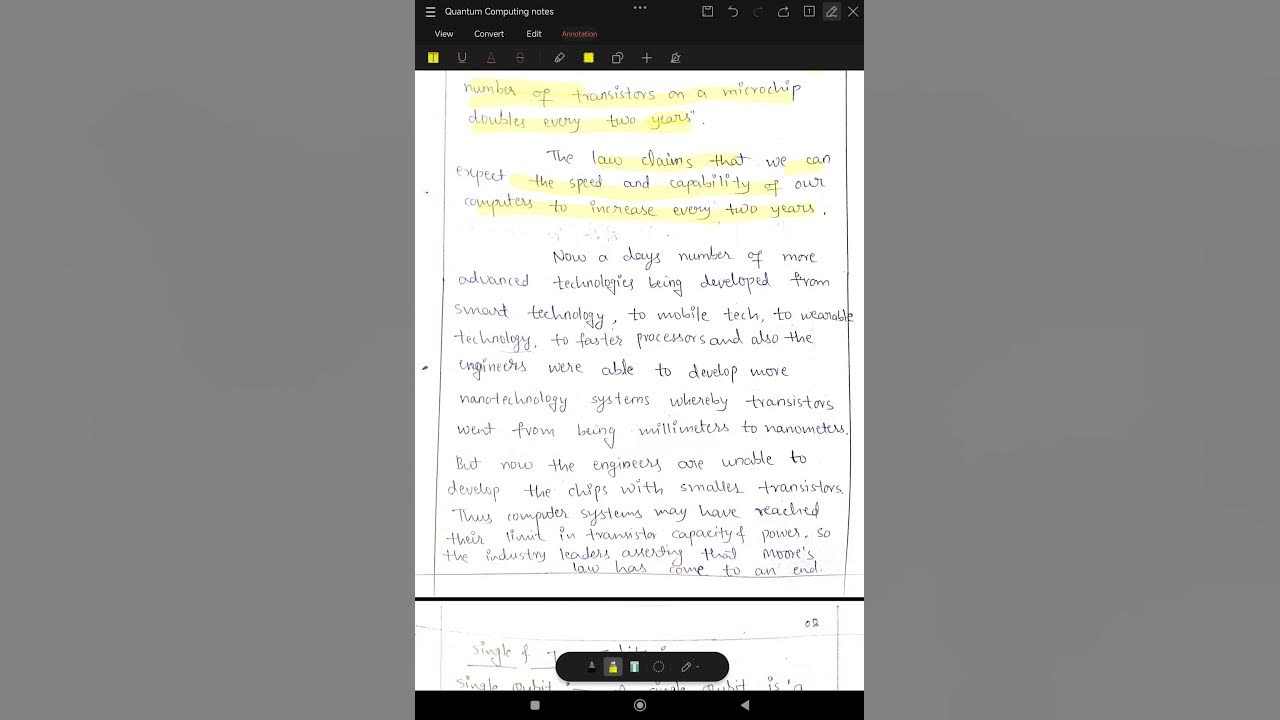 Quantum Computing notes
View Convert Edit Annotation
number of transistors on a microchip
doubles every two years".
The law claims that we can
expect the speed and capability of our
computers to increase every two years.
Now a days number of more
advanced technologies being developed from
smart technology, to mobile tech, to wearable
technology, to faster processors and also the
engineers were able to develop more
nanotechnology systems whereby transistors
went from being millimeters to nanometers.
But now the engineers are unable to
develop the chips with smaller transistors.
Thus computer systems may have reached
their limit in transistor capacity & power. So
the industry leaders asserting that Moore's
law has come to an end.
02
single &
single qubit is a